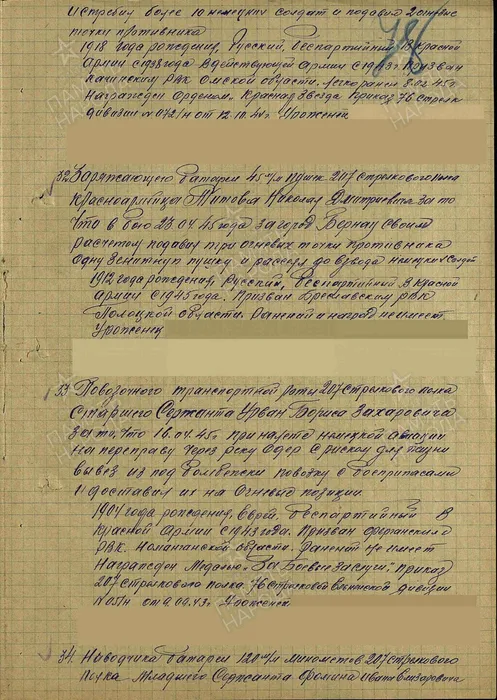 истребил более 10 немецких солдат и подавил 2 огневые
точки противника
1918 года рождения, Русский, беспартийный. В Красной
армии с 1938 года в действующей армии с 1943 г. Призван
РВК Омской области. Легко ранен 8.02.45 г.
Награжден Орденом „Красная Звезда" Приказ 76 стрелк
дивизии № 072/н от 12.10.44 г. Уроженец
32. Заряжающего батареи 45 м/м пушек 207 Стрелкового полка
Красноармейца Титова Николая Дмитриевича за то
что в бою 23.04.45 года за город Бернау своим
расчетом подавил три огневых точки противника
одну зенитную пушку и рассеял до взвода немецких солдат
1912 года рождения, Русский, беспартийный. В Красной
армии с 1945 года. Призван РВК
Полоцкой области. Ранений и наград не имеет
Уроженец
33. Повозочного транспортной роты 207 Стрелкового полка
Старшего Сержанта Урван Бориса Захаровича
за то, что 16.04.45 г. при налете немецкой авиации
на переправу через реку Одер с риском для жизни
вывез из под бомбежки повозку с боеприпасами
и доставил их на огневые позиции.
1904 года рождения, Еврей, беспартийный. В
Красной Армии с 1943 года. Призван
РВК. Наманганской области. Ранений не имеет
Награжден Медалью „За Боевые заслуги", приказ
207 стрелкового полка 76 Стрелковой Ельнинской дивизии
№ 05/н от 9.04.43 г. Уроженец
34. Наводчика батареи 120 м/м минометов 207 стрелкового
полка Младшего Сержанта Фомина Ивана